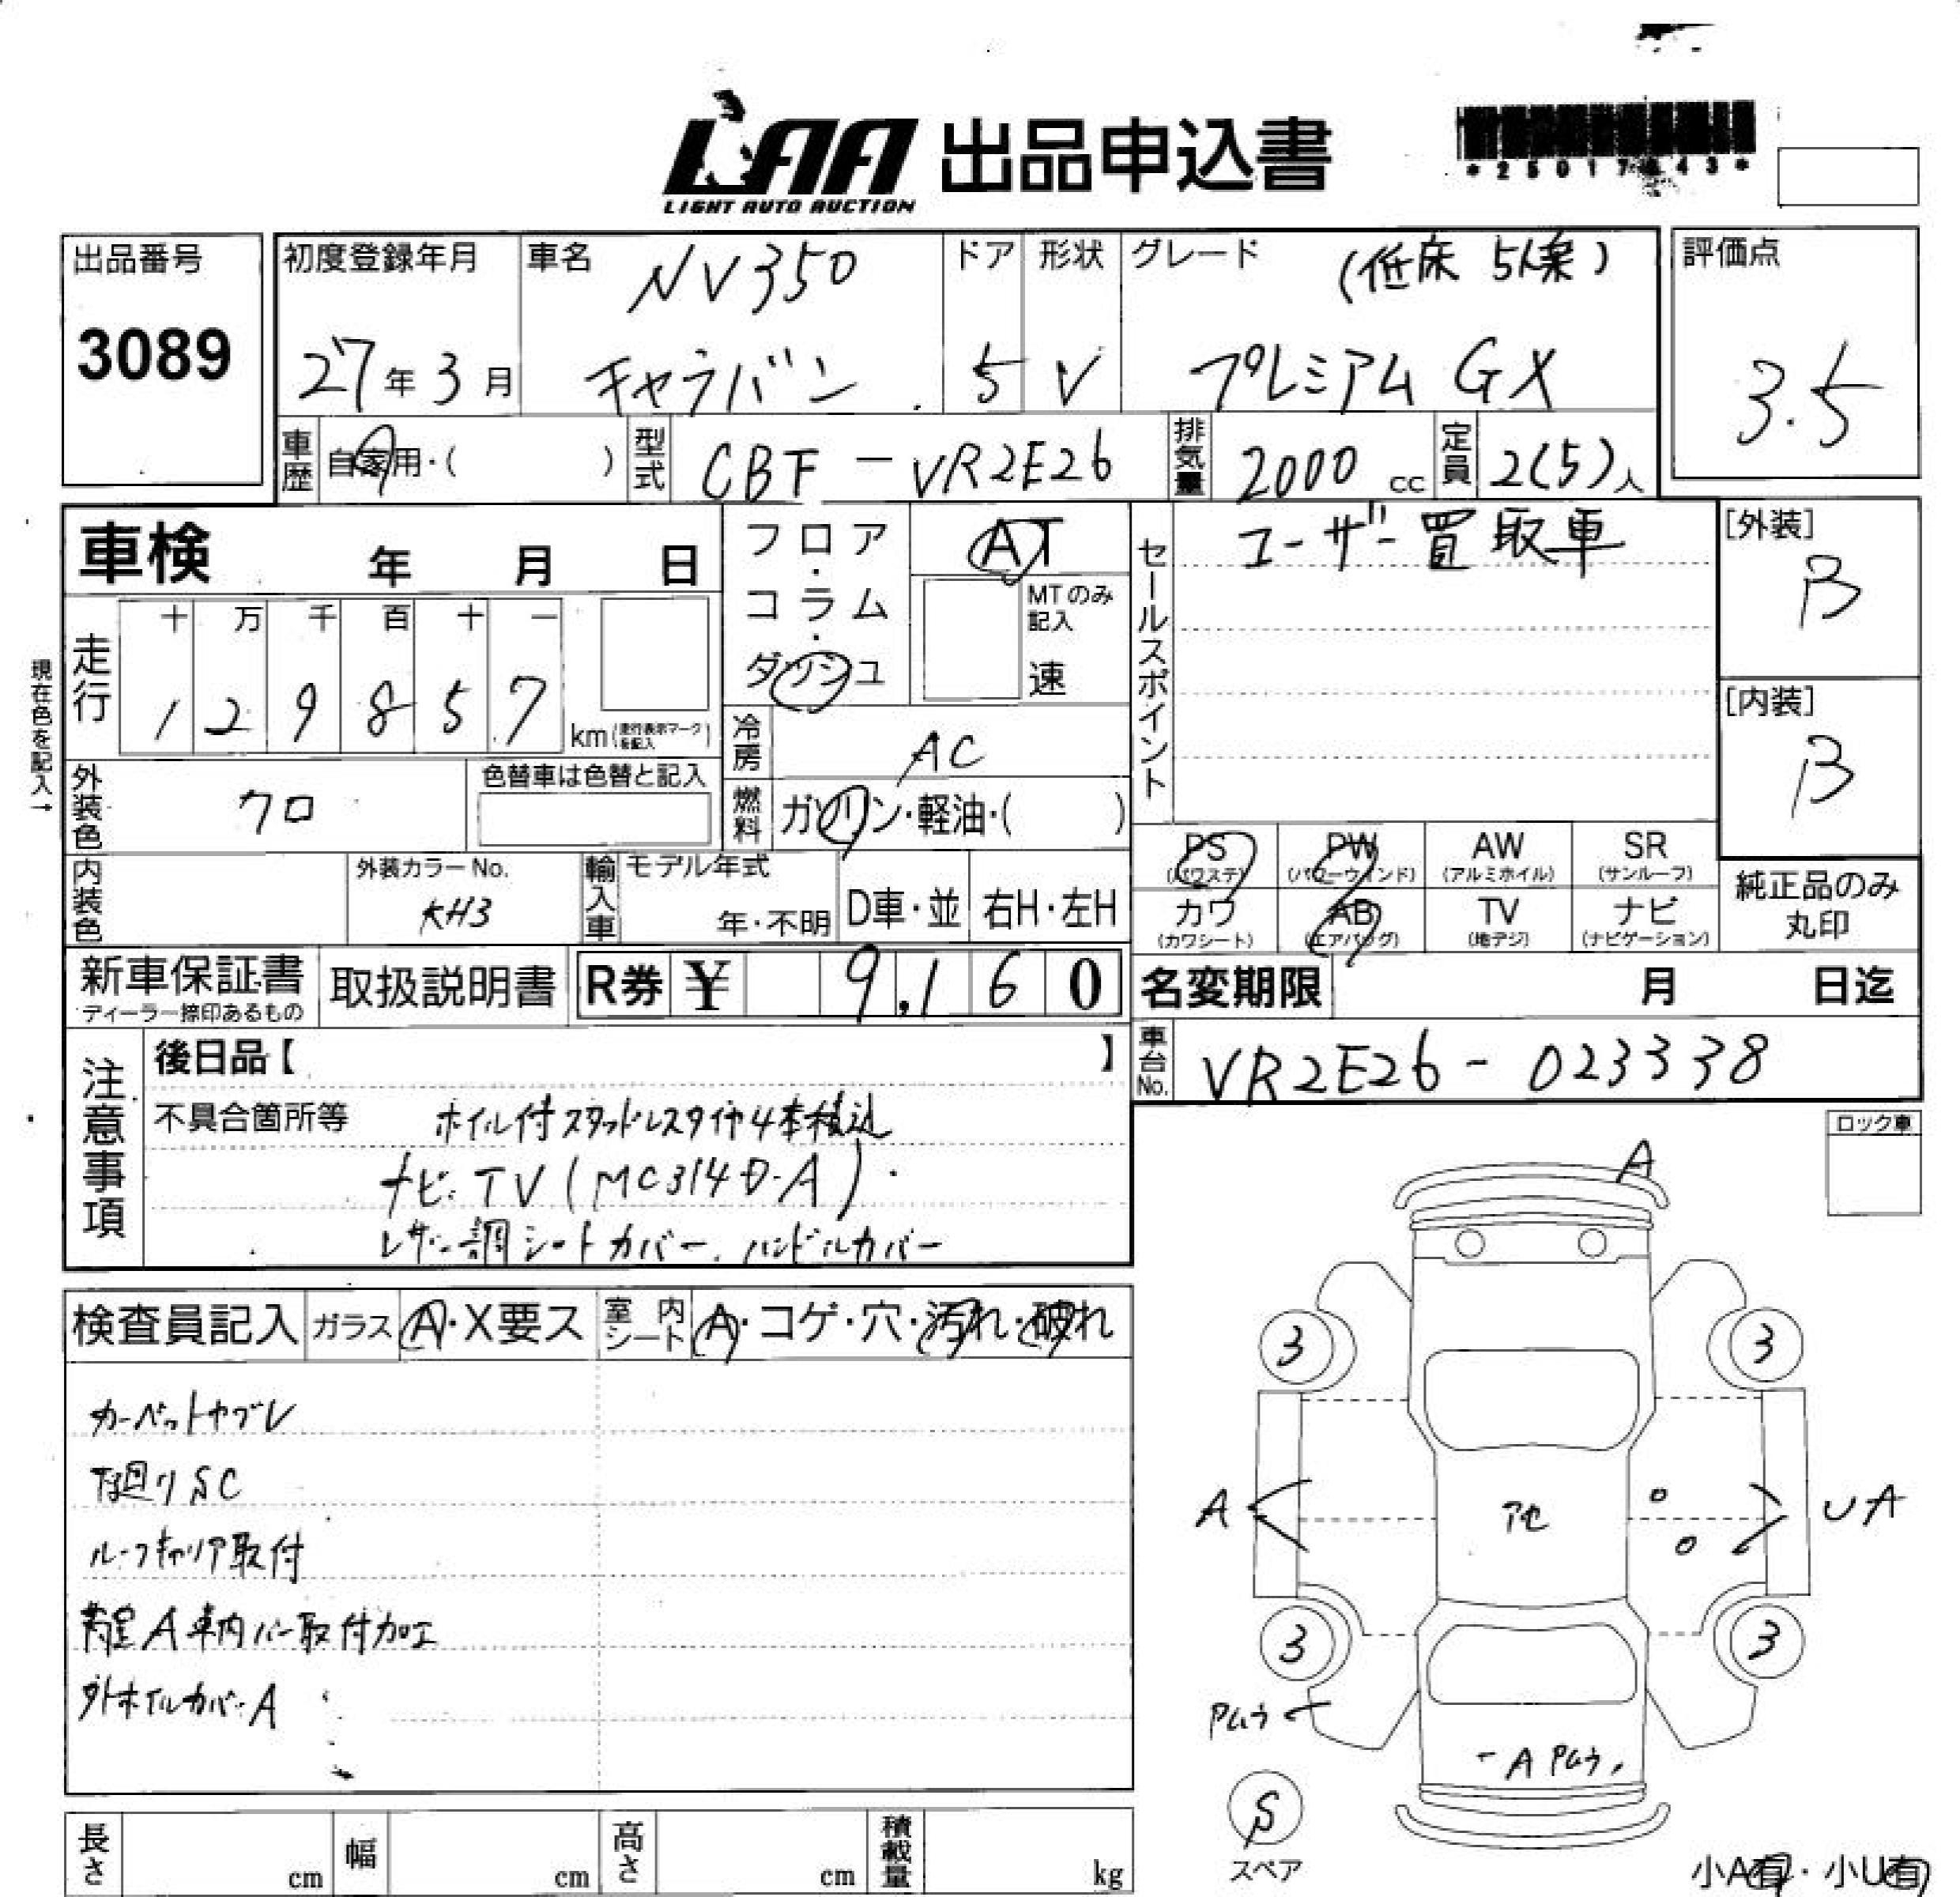 LAA 出品申込書
LIGHT AUTO AUCTION
出品番号
3089
初度登録年月
27年3月
車名
NV350
キャラバン
ドア
5
形状
V
グレード
(低床 5人乗)
プレミアム GX
評価点
3.5
車歴
自家用・( )
型式
CBF-VR2E26
排気量
2000 cc
定員
2(5)人
車検 年 月 日
フロア・コラム・ダッシュ
AT
MTのみ記入
速
セールスポイント
ユーザー買取車
[外装]
B
[内装]
B
現在色を記入→
走行
十 万 千 百 十 一
1 2 9 8 5 7
km(走行表示マークを記入)
冷房
AC
燃料
ガソリン・軽油・( )
外装色
クロ
色替車は色替と記入
内装色
外装カラーNo.
KH3
輸入車
モデル年式
年・不明
D車・並
右H・左H
PS
(パワステ)
PW
(パワーウインド)
AW
(アルミホイル)
SR
(サンルーフ)
カワ
(カワシート)
AB
(エアバッグ)
TV
(地デジ)
ナビ
(ナビゲーション)
純正品のみ
丸印
新車保証書
ディーラー捺印あるもの
取扱説明書
R券 ¥ 9,160
名変期限 月 日迄
車台No.
VR2E26-023338
注意事項
後日品【 】
不具合箇所等
ホイル付スタッドレスタイヤ4本積込
ナビ・TV(MC314D-A)
レザー調シートカバー、ハンドルカバー
ロック車
検査員記入
ガラス
A・X要ス
室内シート
A・コゲ・穴・汚れ・破れ
カーペットヤブレ
下廻りSC
ルーフキャリア取付
A 車内バー取付加工
外ホイルカバーA
A
3
3
A
UA
3
3
Pムラ
A Pムラ
S
スペア
長さ cm
幅 cm
高さ cm
積載量 kg
小A有・小U有